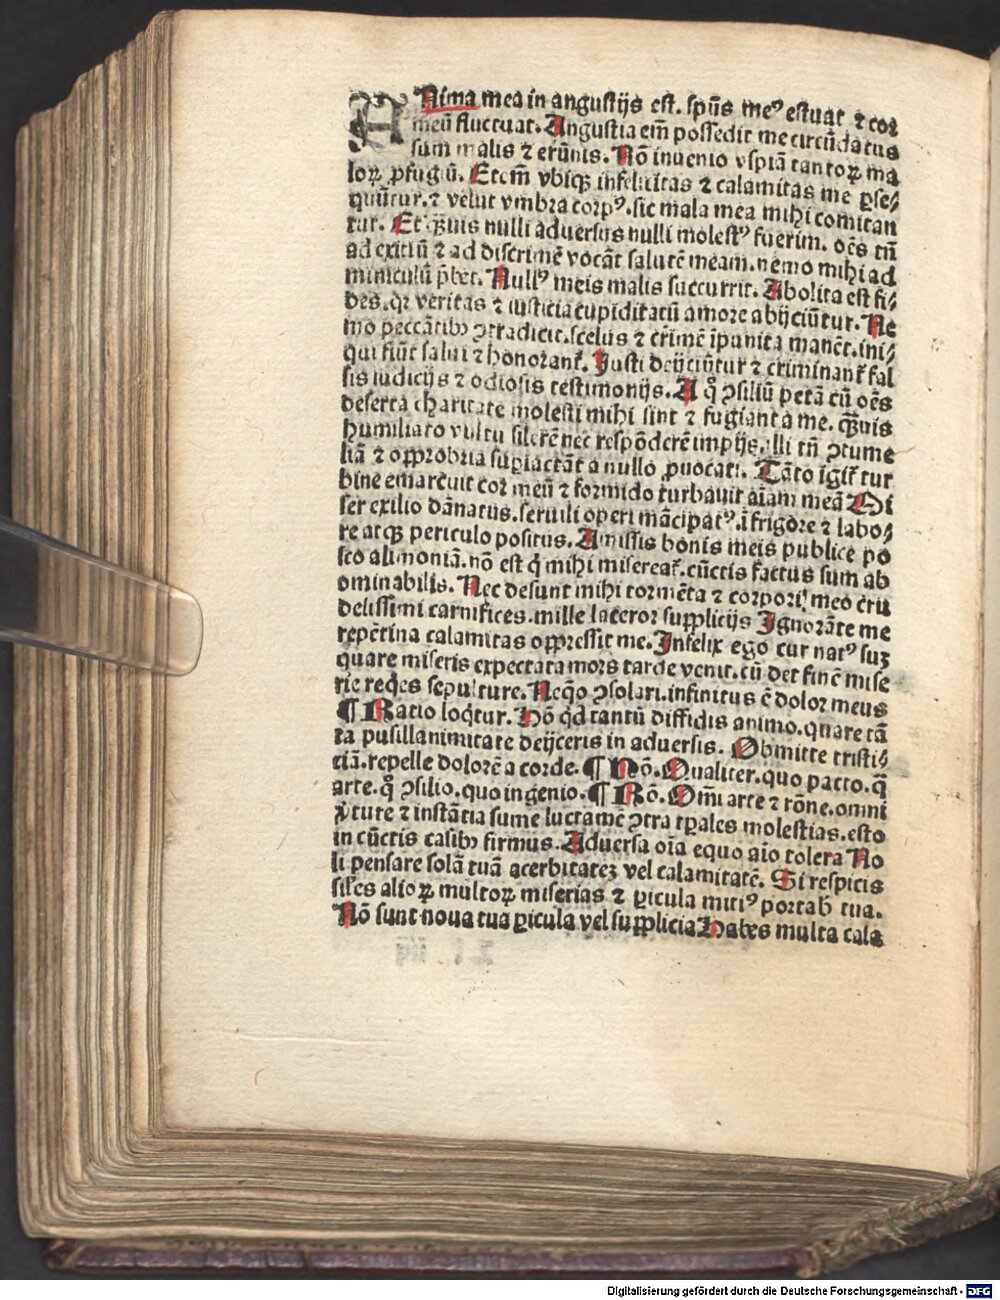 ANima mea in angustijs est. spūs meꝰ estuat ⁊ coꝛ
meū fluctuat. Angustia em̄ possedit me circūdatus
sum malis ⁊ erūnis. Nō inuenio vspiā tantoꝝ ma
loꝝ ꝓfugiū. Etem̄ vbiqꝫ infelicitas ⁊ calamitas me ꝑse⸗
quūtur. ⁊ velut vmbra corpꝰ. sic mala mea mihi comitan
tur. Et qᷓuis nulli aduersus nulli molestꝰ fuerim. oēs tn̄
ad exitiū ⁊ ad discrimē vocāt salutē meam. nemo mihi ad
miniculū p̄bet. Nullꝰ meis malis succurrit. Abolita est fi⸗
des. qꝛ veritas ⁊ iusticia cupiditatū amore abijciūtur. Ne
mo peccātibꝰ ꝯtradicit. scelus ⁊ crimē ipunita manēt. ini⸗
qui fiūt salui ⁊ honoranť. Justi deijciūtur ⁊ criminanť fal
sis iudicijs ⁊ odiosis testimonijs. A qͦ ꝯsiliū petā cū oēs
deserta charitate molesti mihi sint ⁊ fugiant a me. qᷓuis
humiliato vultu silerē nec respōderē impijs. illi tn̄ ꝯtume
liā ⁊ opprobria suꝑiactāt a nullo ꝓuocati. Tāto igiť tur
bine emarcuit coꝛ meū ⁊ formido turbauit aīam meā Mi
ser exilio dānatus. seruili operi mācipatꝰ. i frigore ⁊ labo⸗
re atqꝫ periculo positus. Amissis bonis meis publice po
sco alimoniā. nō est q̇ mihi misereať. cūctis factus sum ab
ominabilis. Nec desunt mihi tormēta ⁊ corpori meo cru
delissimi carnifices. mille laceror supplicijs Ignorāte me
repētina calamitas oppressit me. Infelix ego cur natꝰ suꝫ
quare miseris expectata mors tarde venit. cū det finē mise
rie reqͥes sepulture. Neqͥo ꝯsolari. infinitus ē dolor meus
¶ Ratio loqͥtur. Hō qͥd tantū diffidis animo. quare tā
ta pusillanimitate deijceris in aduersis. Obmitte tristi⸗
ciā. repelle dolorē a corde. ¶ Hō. Qualiter. quo pacto. qᷓ
arte. qͦ ꝯsilio. quo ingenio. ¶ Rō. Om̄i arte ⁊ rōne. omni
v̇tute ⁊ instātia sume luctamē ꝯtra tꝑales molestias. esto
in cūctis casibꝰ firmus. Aduersa oīa equo aīo tolera No
li pensare solā tuā acerbitateꝫ vel calamitatē. Si respicis
sīles alioꝝ multoꝝ miserias ⁊ ꝑicula mitiꝰ portabꝭ tua.
Nō sunt noua tua ꝑicula vel supplicia Habes multa cala
Digitalisierung gefördert durch die Deutsche Forschungsgemeinschaft - DFG